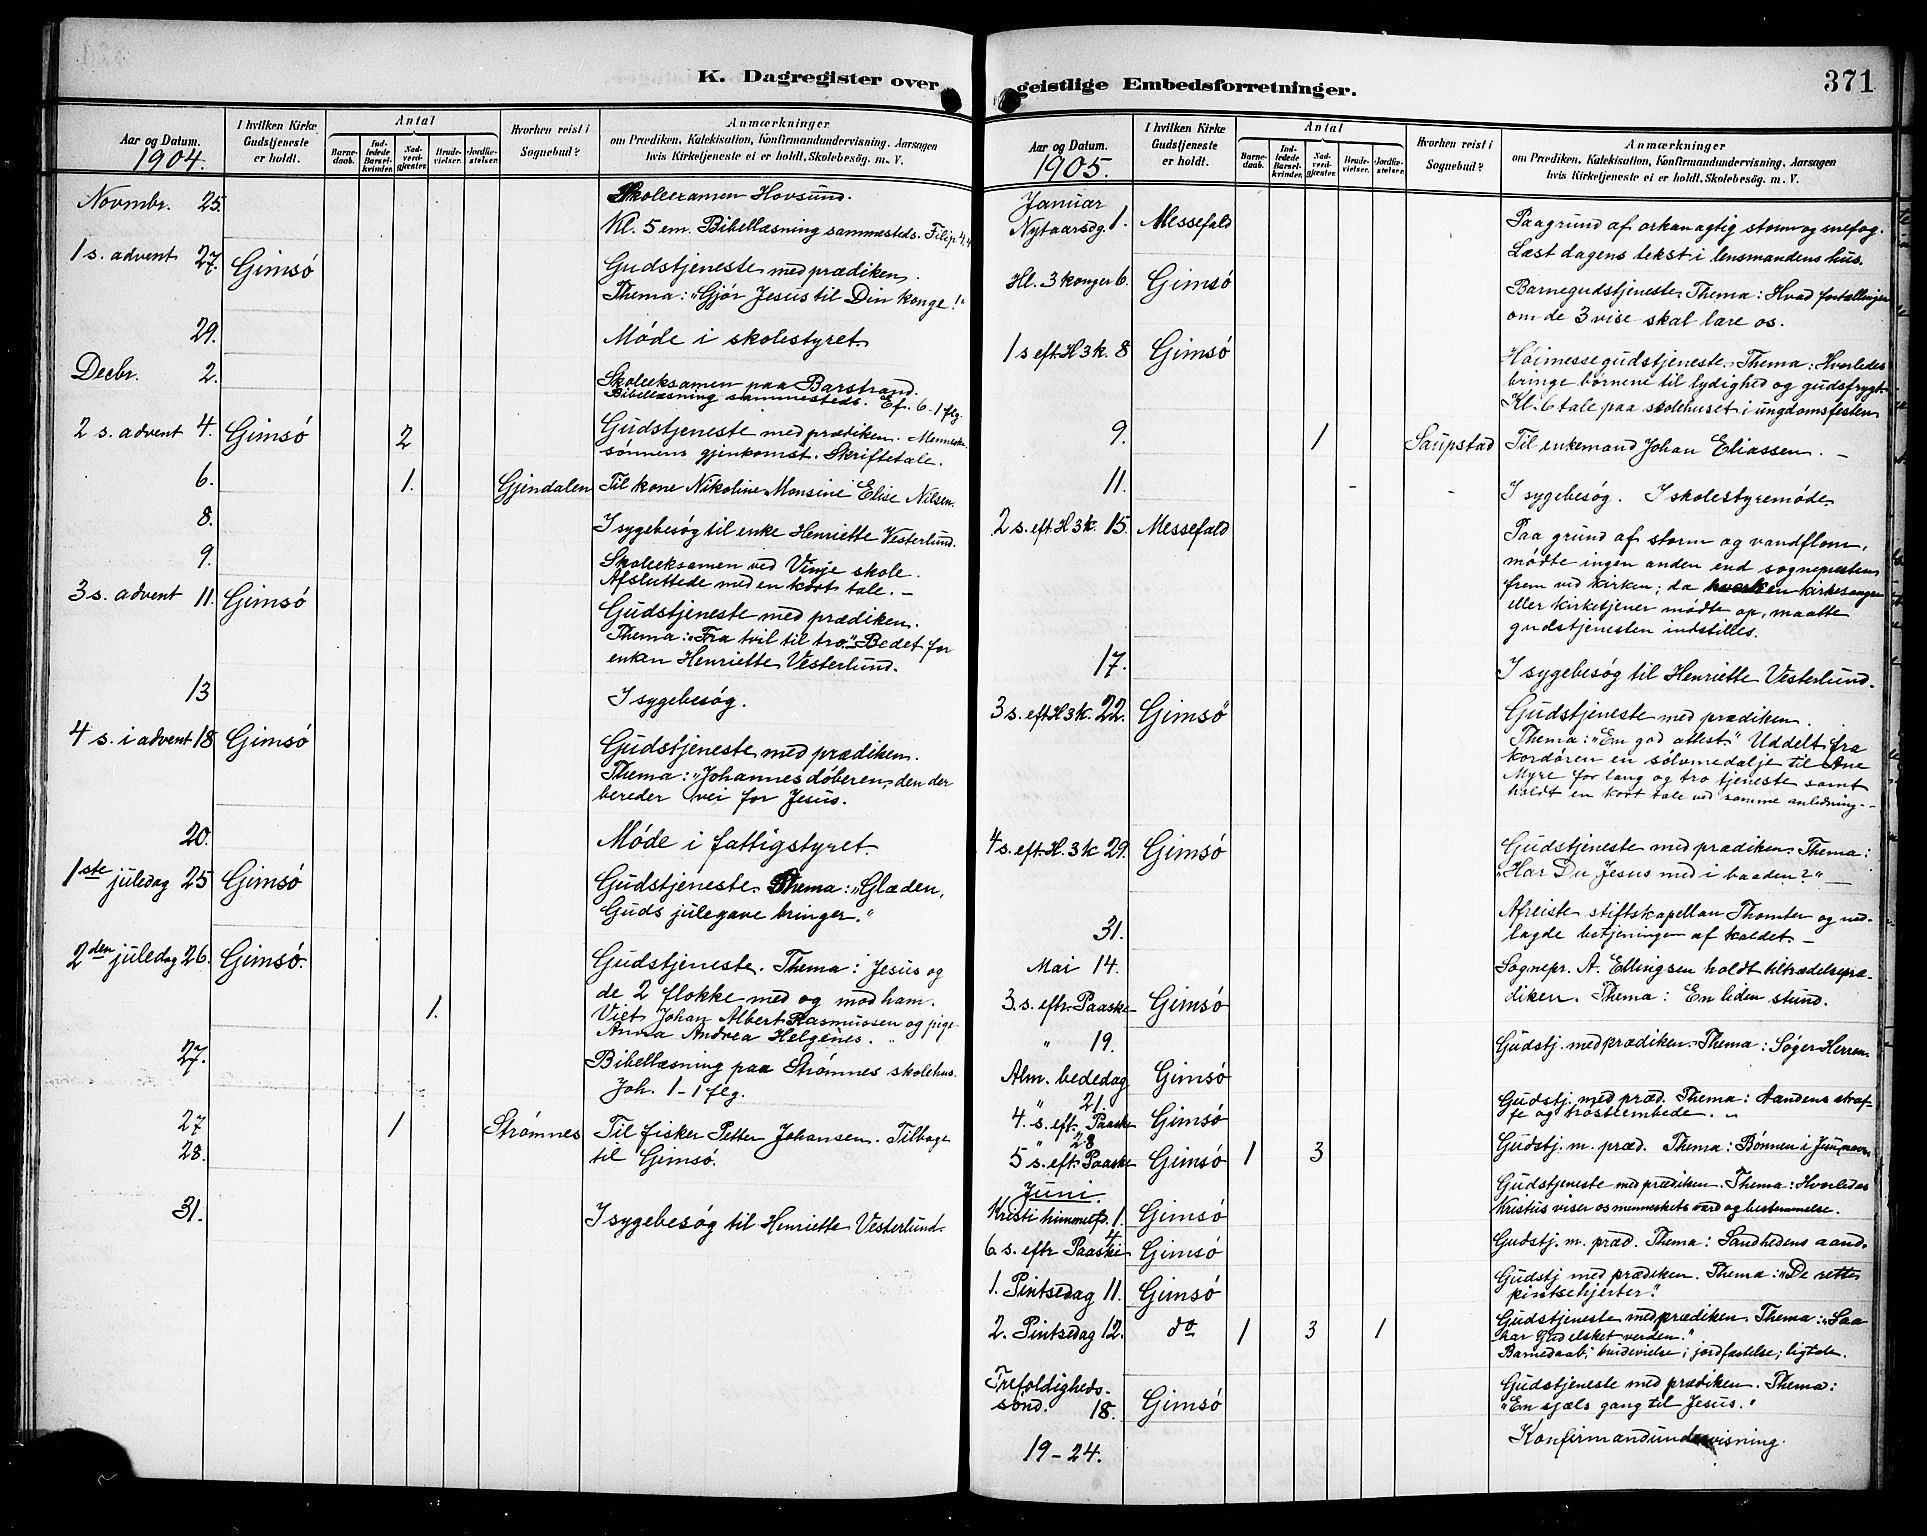 K. Dagregister over
Aar og Datum.
1904.
I hvilken Kirke
Gudstjeneste
er holdt.
Antal
Barne-
daab.
Ind-
ledede
Barsel-
kvinder.
Nad-
verd-
gjester.
Brude-
vielser.
Jordfæ-
stelser.
Hvorhen reist i
Sognebud?
Anmærkninger
om Prædiken, Katekisation, Konfirmandundervisning, Aarsagen
hvis Kirketjeneste ei er holdt, Skolebesøg. m. V.
Novmbr. 25. Skoleexamen Hovsund.
Kl. 5 em. Bibellæsning sammesteds. Filip 4,4
1 s. advent 27. Gimsö Gudstjeneste med prædiken.
Thema: "Gjör Jesus til Din konge!"
29. Möde i skolestyret.
Decbr. 2. Skoleeksamen paa Barstrand.
Bibellæsning sammesteds. Ef. 6-1 flg.
2 s. advent 4. Gimsö 2 Gudstjeneste med prædiken. Menneske-
sönnens gjenkomst. Skriftetale.
6. 1. Gjendalen Til kone Nikoline Monsine Elise Nilsen.
8. I sygebesög til enke Henriette Vesterlund.
9. Skoleeksamen ved Vinje skole.
Afsluttede med en kort tale. –
3 s. advent 11. Gimsö Gudstjeneste med prædiken.
Thema: "Fra tvil til tro." Bedet for
enken Henriette Vesterlund.
13 I sygebesög.
4 s. i advent 18 Gimsö Gudstjeneste med prædiken.
Thema: "Johannes döberen, den der
bereder vei for Jesus.
20. Möde i fattigstyret.
1ste juledag 25 Gimsö Gudstjeneste. Thema: "Glæden,
Guds julegave bringer."
2den juledag 26. Gimsö. Gudstjeneste. Thema: Jesus og
de 2 flokke med og mod ham.
1. Viet Johan Albert Rasmussen og pige
Anna Andrea Helgenes.
27. Bibellæsning paa Strömnes skolehus.
Joh. 1-1 flg.
27 1 Strömnes Til fisker Petter Johansen. Tilbage
28. til Gimsö.
31. I sygebesög til Henriette Vesterlund.
geistlige Embedsforretninger.
371
Aar og Datum.
1905.
I hvilken Kirke
Gudstjeneste
er holdt.
Antal
Barne-
daab.
Ind-
ledede
Barsel-
kvinder.
Nad-
verd-
gjester.
Brude-
vielser.
Jordfæ-
stelser.
Hvorhen reist i
Sognebud?
Anmærkninger
om Prædiken, Katekisation, Konfirmandundervisning, Aarsagen
hvis Kirketjeneste ei er holdt, Skolebesøg. m. V.
Januar
Nytaarsdg. 1. Messefald Paagrund af orkanagtig storm og snefog.
Læst dagens tekst i lensmandens hus.
Hl. 3 konger 6. Gimsö Barnegudstjeneste. Thema: Hvad fortællingen
om de 3 vise skal lære os.
1 s eft. H 3 k. 8 Gimsö Höimessegudstjeneste. Thema: Hvorledes
bringe börnene til lydighed og gudsfrygt.
Kl. 6 tale paa skolehuset i ungdomsfesten
9. 1 Saupstad Til enkemand Johan Eliassen. –
11. I sygebesög. I skolestyremöde.
2 s. eft. H 3 k. 15. Messefald Paa grund af storm og vandflom,
mödte ingen anden end sognepresten
frem ved kirken; da hverken kirkesanger
eller kirketjener mödte op, maatte
gudstjenesten indstilles.
17. I sygebesög til Henriette Vesterlund.
3 s. eft H 3 k. 22. Gimsö Gudstjeneste med prædiken.
Thema: "En god attest." Uddelt fra
kordören en sölvmedalje til Ane
Myre for lang og tro tjeneste samt
holdt en kort tale ved samme anledning. –
4 s. eft. H. 3 k 29. Gimsö Gudstjeneste med prædiken. Thema:
"Har Du Jesus med i baaden?" –
31. Afreiste stiftskapellan Thomter og ned-
lagde betjeningen af kaldet. –
Mai 14. Sognepr. A. Ellingsen holdt tiltrædelsespræ-
3. s. eftr. Paaske Gimsö diken. Thema: En liden stund.
" 19. Gudstj. med prædiken. Thema: Söger Herren.
Alm. bededag Gimsö
" 21. Gudstj. med præd. Thema: Aandens straf-
4. s. eft. Paaske Gimsö fe og tröstembede.
" 28 Gudstj. m. præd. Thema: Bönnen i Jesu navn
5 s. eft. Paaske Gimsö 1 3
Juni. Gudstjeneste med prædiken. Thema: Hvorledes
Kristi himmelf. 1. Gimsö Kristus viser os menneskets værd og bestemmelse.
4
6. s. eftr Paaske Gimsö Gudstj. m. præd. Thema: Sandhedens aand.
1. Pintsedag 11. Gimsö Gudstj med prædiken. Thema: "De rette
pintsehjerter."
2. Pintsedag 12. do 1 3 1 Gudstjeneste med prædiken. Thema: "Saa
har Gud elsket verden."
Barnedaab; brudevielse; jordfæstelse; ligtale.
Trefoldigheds-
sönd. 18. Gimsö Gudstjeneste med prædiken. Thema:
"En sjæls gang til Jesus."
19-24. Konfirmandundervisning.